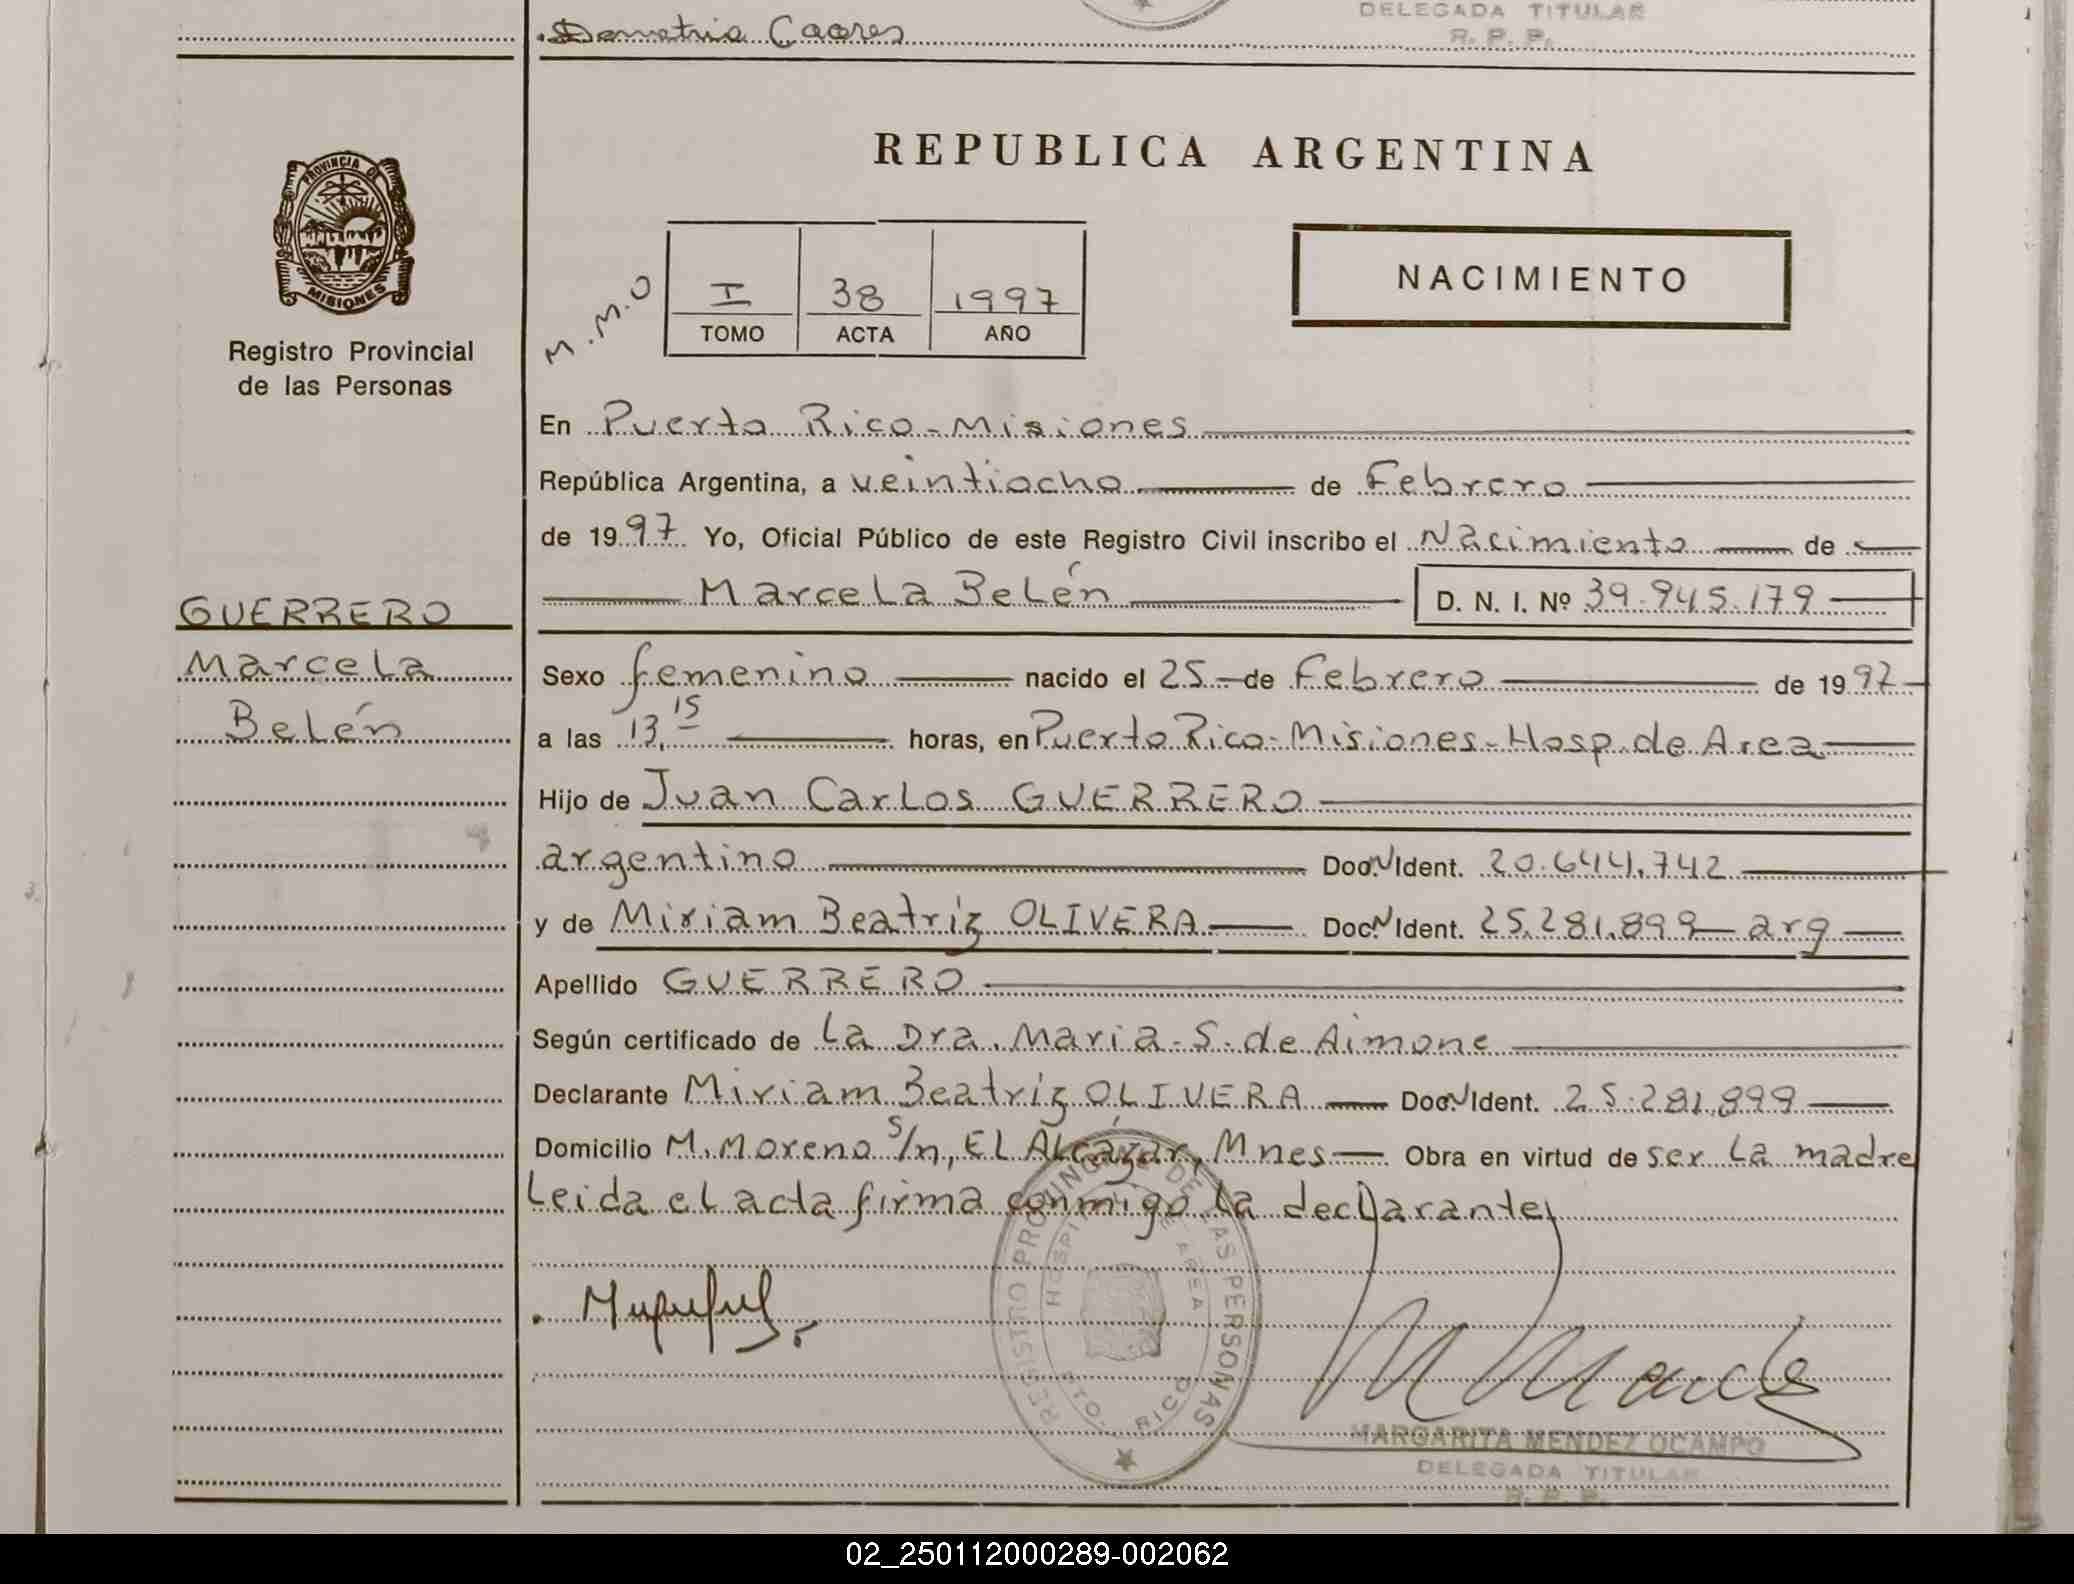 DELEGADA TITULAR
R. P. P.
Demetria Caceres
PROVINCIA DE
MISIONES
Registro Provincial
de las Personas
REPUBLICA ARGENTINA
M.M.O
I 38 1997
TOMO ACTA AÑO
NACIMIENTO
En Puerto Rico - Misiones
República Argentina, a veintiocho de Febrero
de 1997 Yo, Oficial Público de este Registro Civil inscribo el Nacimiento de
Marcela Belén D. N. I. Nº 39.945.179
GUERRERO
Marcela
Belén
Sexo femenino nacido el 25 de Febrero de 1997
a las 13,15 horas, en Puerto Rico - Misiones - Hosp. de Area
Hijo de Juan Carlos GUERRERO
argentino Doc. N Ident. 20.644.742
y de Miriam Beatriz OLIVERA Doc. N Ident. 25.281.899 arg
Apellido GUERRERO
Según certificado de La Dra. Maria S. de Aimone
Declarante Miriam Beatriz OLIVERA Doc. N Ident. 25.281.899
Domicilio M. Moreno s/n, EL Alcázar, Mnes Obra en virtud de ser La madre
Leida el acta firma conmigo la declarante
REGISTRO PROVINCIAL DE LAS PERSONAS
HOSPITAL DE AREA
PTO. RICO
MARGARITA MENDEZ OCAMPO
DELEGADA TITULAR
R. P. P.
02_250112000289-002062